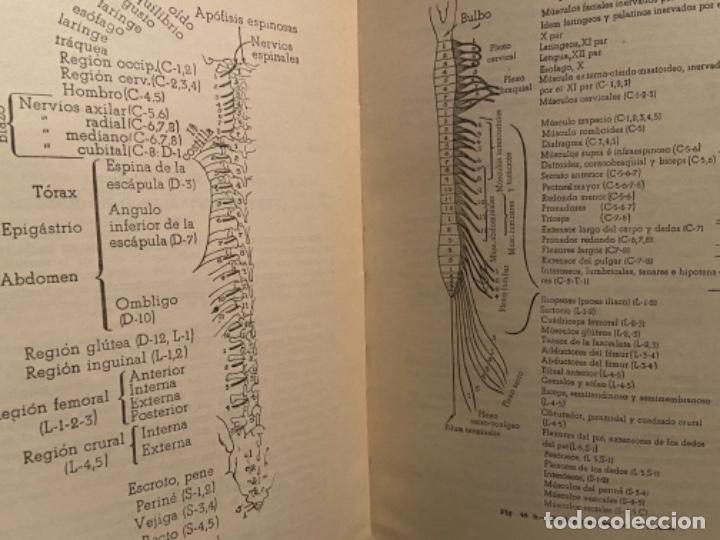 oído
equilibrio
gusto
laringe
esófago
laringe
tráquea
Región occip. (C-1,2)
Región cerv. (C-2,3,4)
Hombro (C-4,5)
Nervios axilar (C-5,6)
" radial (C-6,7,8)
" mediano (C-6,7,8)
" cubital (C-8: D-1
Brazo
1a costilla
Apófisis espinosas
Nervios espinales
Espina de la
escápula (D-3)
Tórax
Angulo
inferior de la
escápula (D-7)
Epigástrio
Abdomen
Ombligo
(D-10)
Región glútea (D-12, L-1)
Región inguinal (L-1,2)
Región femoral
(L-1-2-3)
Anterior
Interna
Externa
Posterior
Región crural
(L-4,5)
Interna
Externa
Escroto, pene
Periné (S-1,2)
Vejiga (S-3,4)
Recto (S-4,5)
Bulbo
Plexo cervical
Plexo braquial
Músculos intercostales
y torácicos
Musc. abdominales
Musc. lumbares
Plexo lumbar
Plexo sacro
Plexo sacro-coxígeo
Filum terminales
Músculos faciales inervados por
Idem laríngeos y palatinos inervados por e
X par
Laríngeos, XI par
Lengua, XII par
Esófago, X
Músculo externo-cleido-mastoideo, inervad
por el XI par (C-1,2,3)
Músculos cervicales (C-1-2-3)
Músculo trapecio (C-1,2,3,4,5)
Músculo romboides (C-5)
Diafragma (C-3,4,5)
Músculos supra é infraespinoso (C-5-6)
Deltoides, coracobraquial y bíceps (C-5,6)
Serrato anterior (C-5-6)
Pectoral mayor (C-5-6-7-8)
Redondo menor (C-5-6)
Pronadores (C-5-6-7)
Tríceps (C-7-8)
Extensor largo del carpo y dedos (C-7)
Pronador redondo (C-6,7,8)
Flexores largos (C7-8)
Extensor del pulgar (C-7-8)
Interóseos, lumbricales, tenares e hipotena
res (C-8-T-1)
Iliopsoas (psoas iliaco) (L-1-2)
Sartorio (L-1-2)
Cuádriceps femoral (L-2-3)
Músculos glúteos (L-2,-3)
Tensor de la fascelata (L-2-3)
Adductores del fémur (L-3-4)
Abductores del fémur (L-3-4)
Tibial anterior (L-4-5)
Gemelos y sóleo (L-4-5)
Bíceps, semitendinoso y semimembranoso
(L-4-5)
Obturador, piramidal y cuadrado crural
(L-4-5)
Flexores del pié, extensores de los dedos
del pié (L-5,S-1)
Peroneos, (L-5,S-1)
Flexores de los dedos (L-5,S-1)
Interóseos, (S-1-2)
Músculos del perinè (S-3-4)
Músculos vesicales (S-4-5)
Músculos rectales
todocoleccion